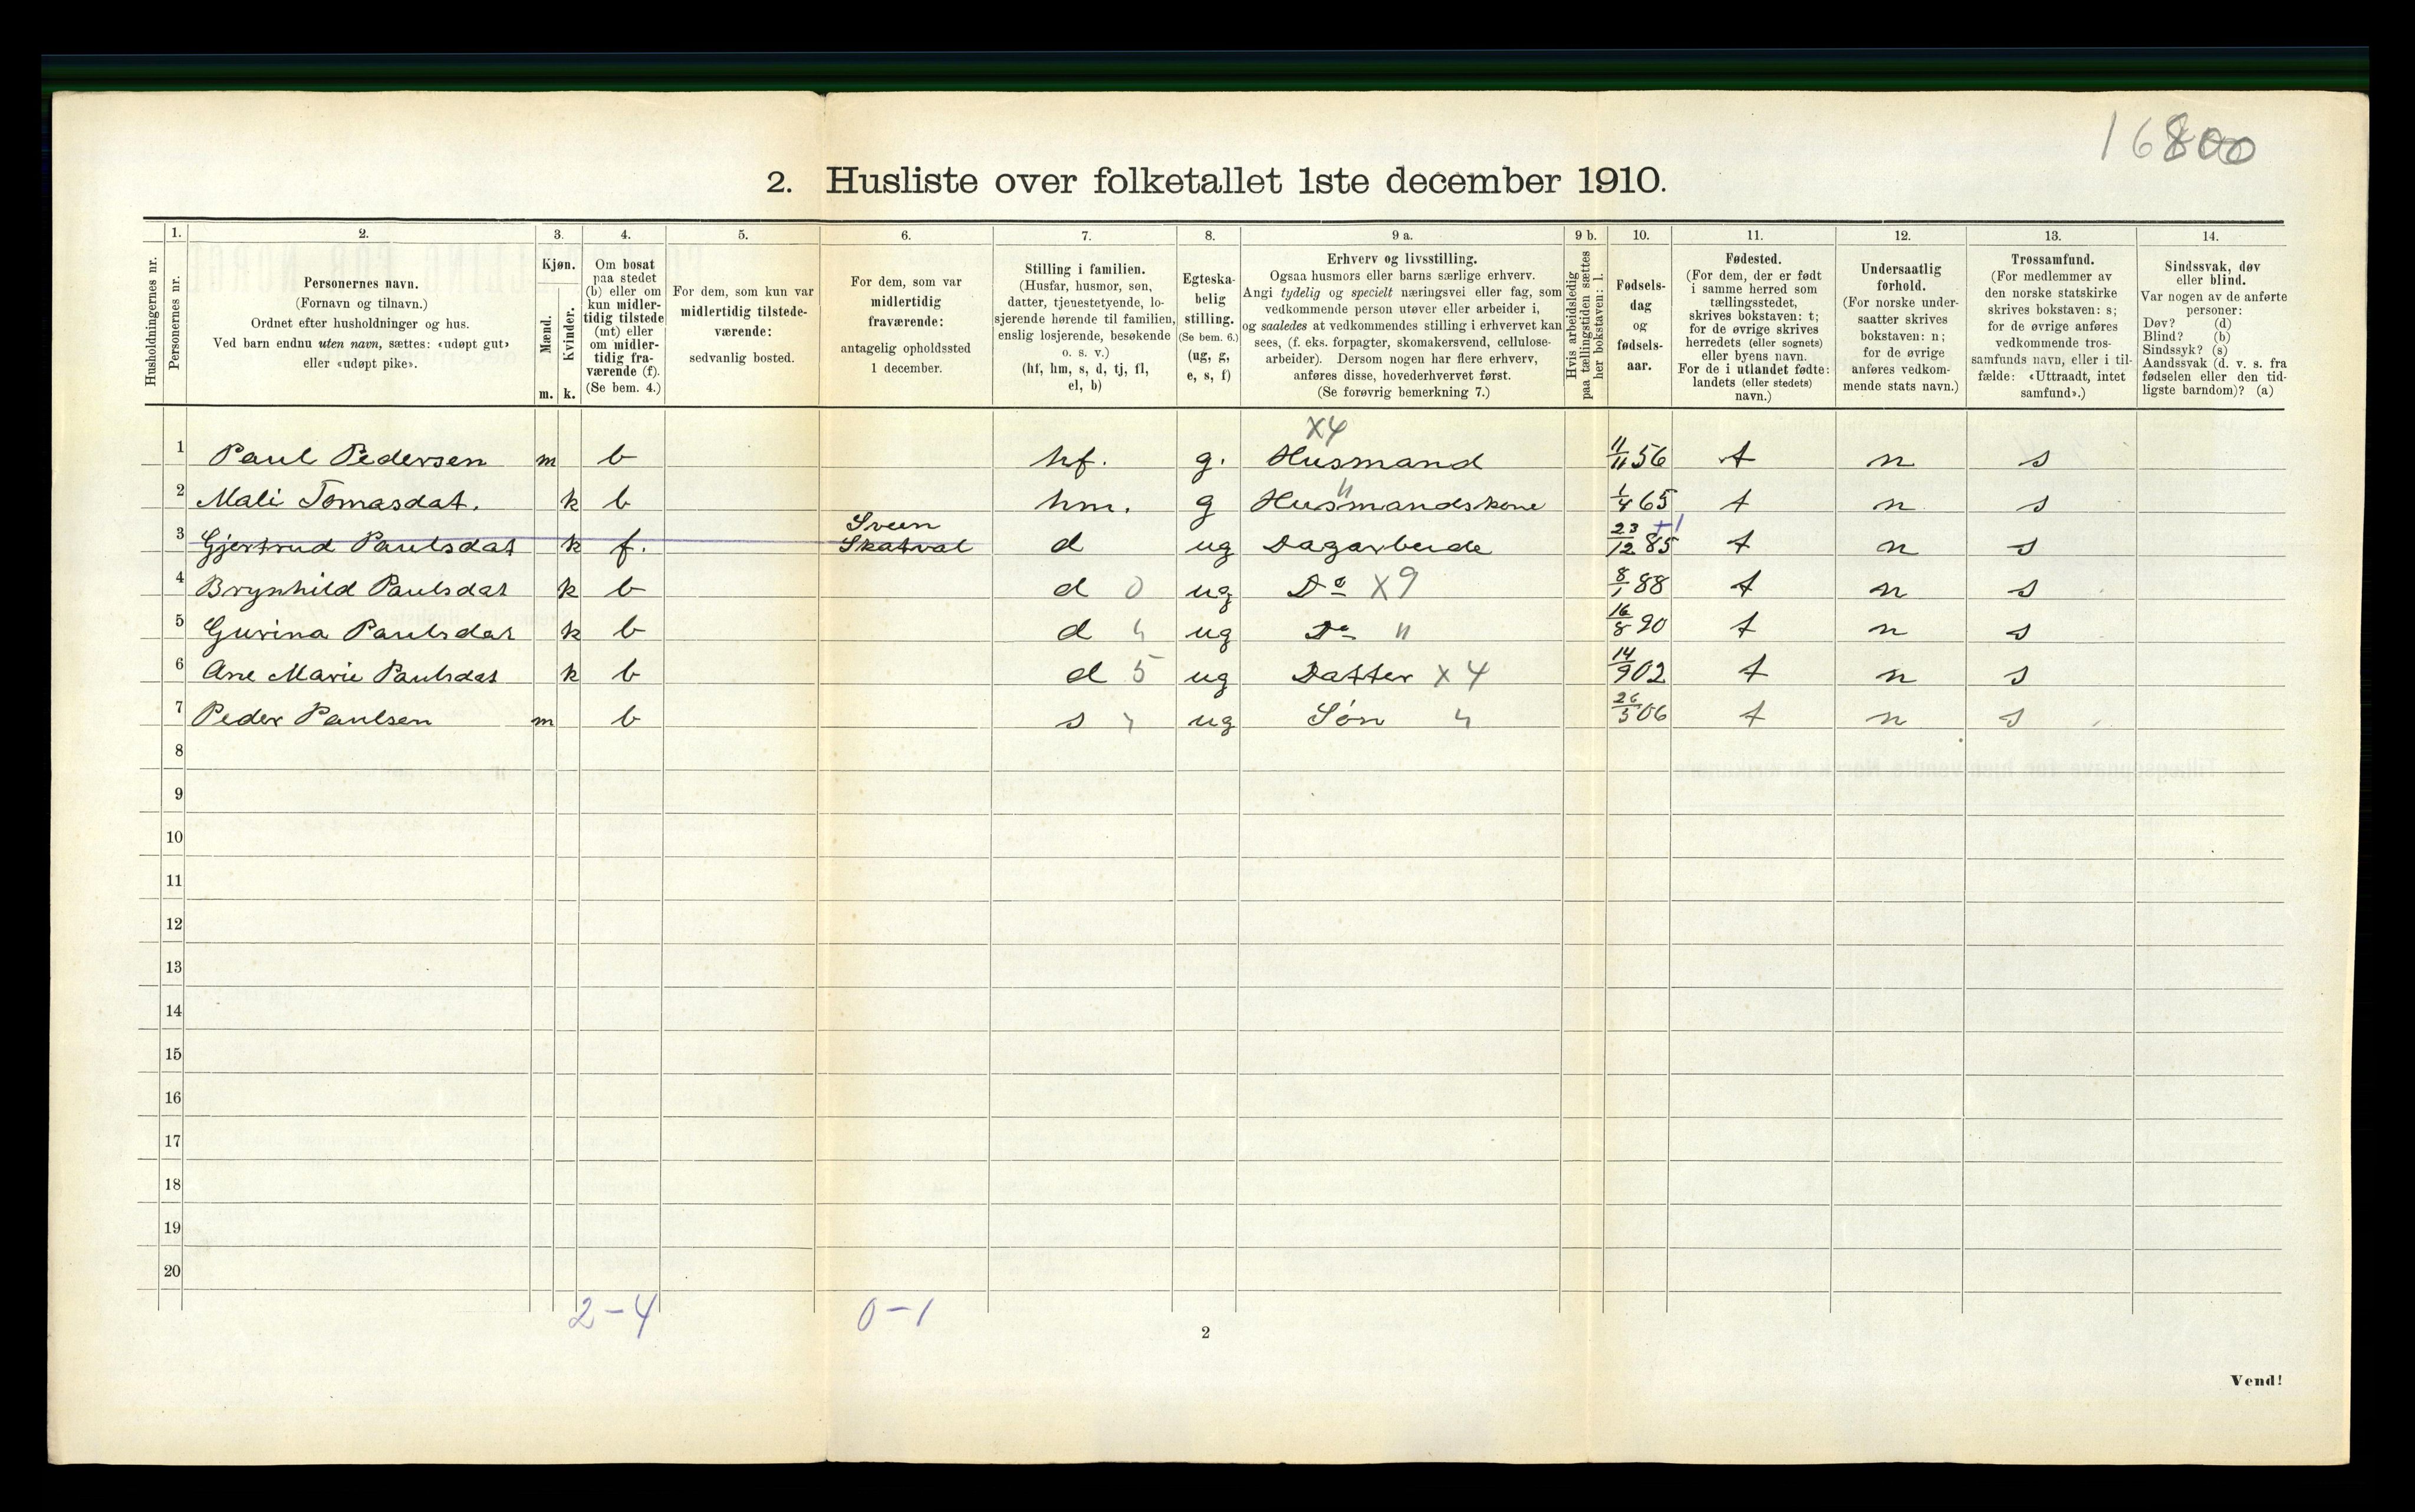 16800
2. Husliste over folketallet 1ste december 1910.
Husholdningernes nr.
1.
Personernes nr.
2.
Personernes navn.
(Fornavn og tilnavn.)
Ordnet efter husholdninger og hus.
Ved barn endnu uten navn, sættes: «udøpt gut»
eller «udøpt pike».
3.
Kjøn.
Mænd.
Kvinder.
m. k.
4.
Om bosat
paa stedet
(b) eller om
kun midler-
tidig tilstede
(mt) eller
om midler-
tidig fra-
værende (f).
(Se bem. 4.)
5.
For dem, som kun var
midlertidig tilstede-
værende:
sedvanlig bosted.
6.
For dem, som var
midlertidig
fraværende:
antagelig opholdssted
1 december.
7.
Stilling i familien.
(Husfar, husmor, søn,
datter, tjenestetyende, lo-
sjerende hørende til familien,
enslig losjerende, besøkende
o. s. v.)
(hf, hm, s, d, tj, fl,
el, b)
8.
Egteska-
belig
stilling.
(Se bem. 6.)
(ug, g,
e, s, f)
9 a.
Erhverv og livsstilling.
Ogsaa husmors eller barns særlige erhverv.
Angi tydelig og specielt næringsvei eller fag, som
vedkommende person utøver eller arbeider i,
og saaledes at vedkommendes stilling i erhvervet kan
sees, (f. eks. forpagter, skomakersvend, cellulose-
arbeider). Dersom nogen har flere erhverv,
anføres disse, hovederhvervet først.
(Se forøvrig bemerkning 7.)
9 b.
Hvis arbeidsledig
paa tællingstiden sættes
her bokstaven: l.
10.
Fødsels-
dag
og
fødsels-
aar.
11.
Fødested.
(For dem, der er født
i samme herred som
tællingsstedet,
skrives bokstaven: t;
for de øvrige skrives
herredets (eller sognets)
eller byens navn.
For de i utlandet fødte:
landets (eller stedets)
navn.)
12.
Undersaatlig
forhold.
(For norske under-
saatter skrives
bokstaven: n;
for de øvrige
anføres vedkom-
mende stats navn.)
13.
Trossamfund.
(For medlemmer av
den norske statskirke
skrives bokstaven: s;
for de øvrige anføres
vedkommende tros-
samfunds navn, eller i til-
fælde: «Uttraadt, intet
samfund».)
14.
Sindssvak, døv
eller blind.
Var nogen av de anførte
personer:
Døv? (d)
Blind? (b)
Sindssyk? (s)
Aandssvak (d. v. s. fra
fødselen eller den tid-
ligste barndom)? (a)
X4
1 Paul Pedersen m b hf. g. Husmand 11/11 56 t n s
2 Mali Tomasdat. k b hm. g Husmandskone " 1/4 65 t n s
Sveen
3 Gjertrud Paulsdat k f. Skatval d ug Dagarbeide 23/12 85 +1 t n s
4 Brynhild Paulsdat k b d 0 ug Do X9 8/1 88 t n s
5 Gurina Paulsdat k b d ug Do " 16/8 90 t n s
6 Ane Marie Paulsdat k b d 5 ug Datter X4 14/9 02 t n s
7 Peder Paulsen m b s ug Søn 26/5 06 t n s
8
9
10
11
12
13
14
15
16
17
18
19
20
2-4 0-1
2
Vend!